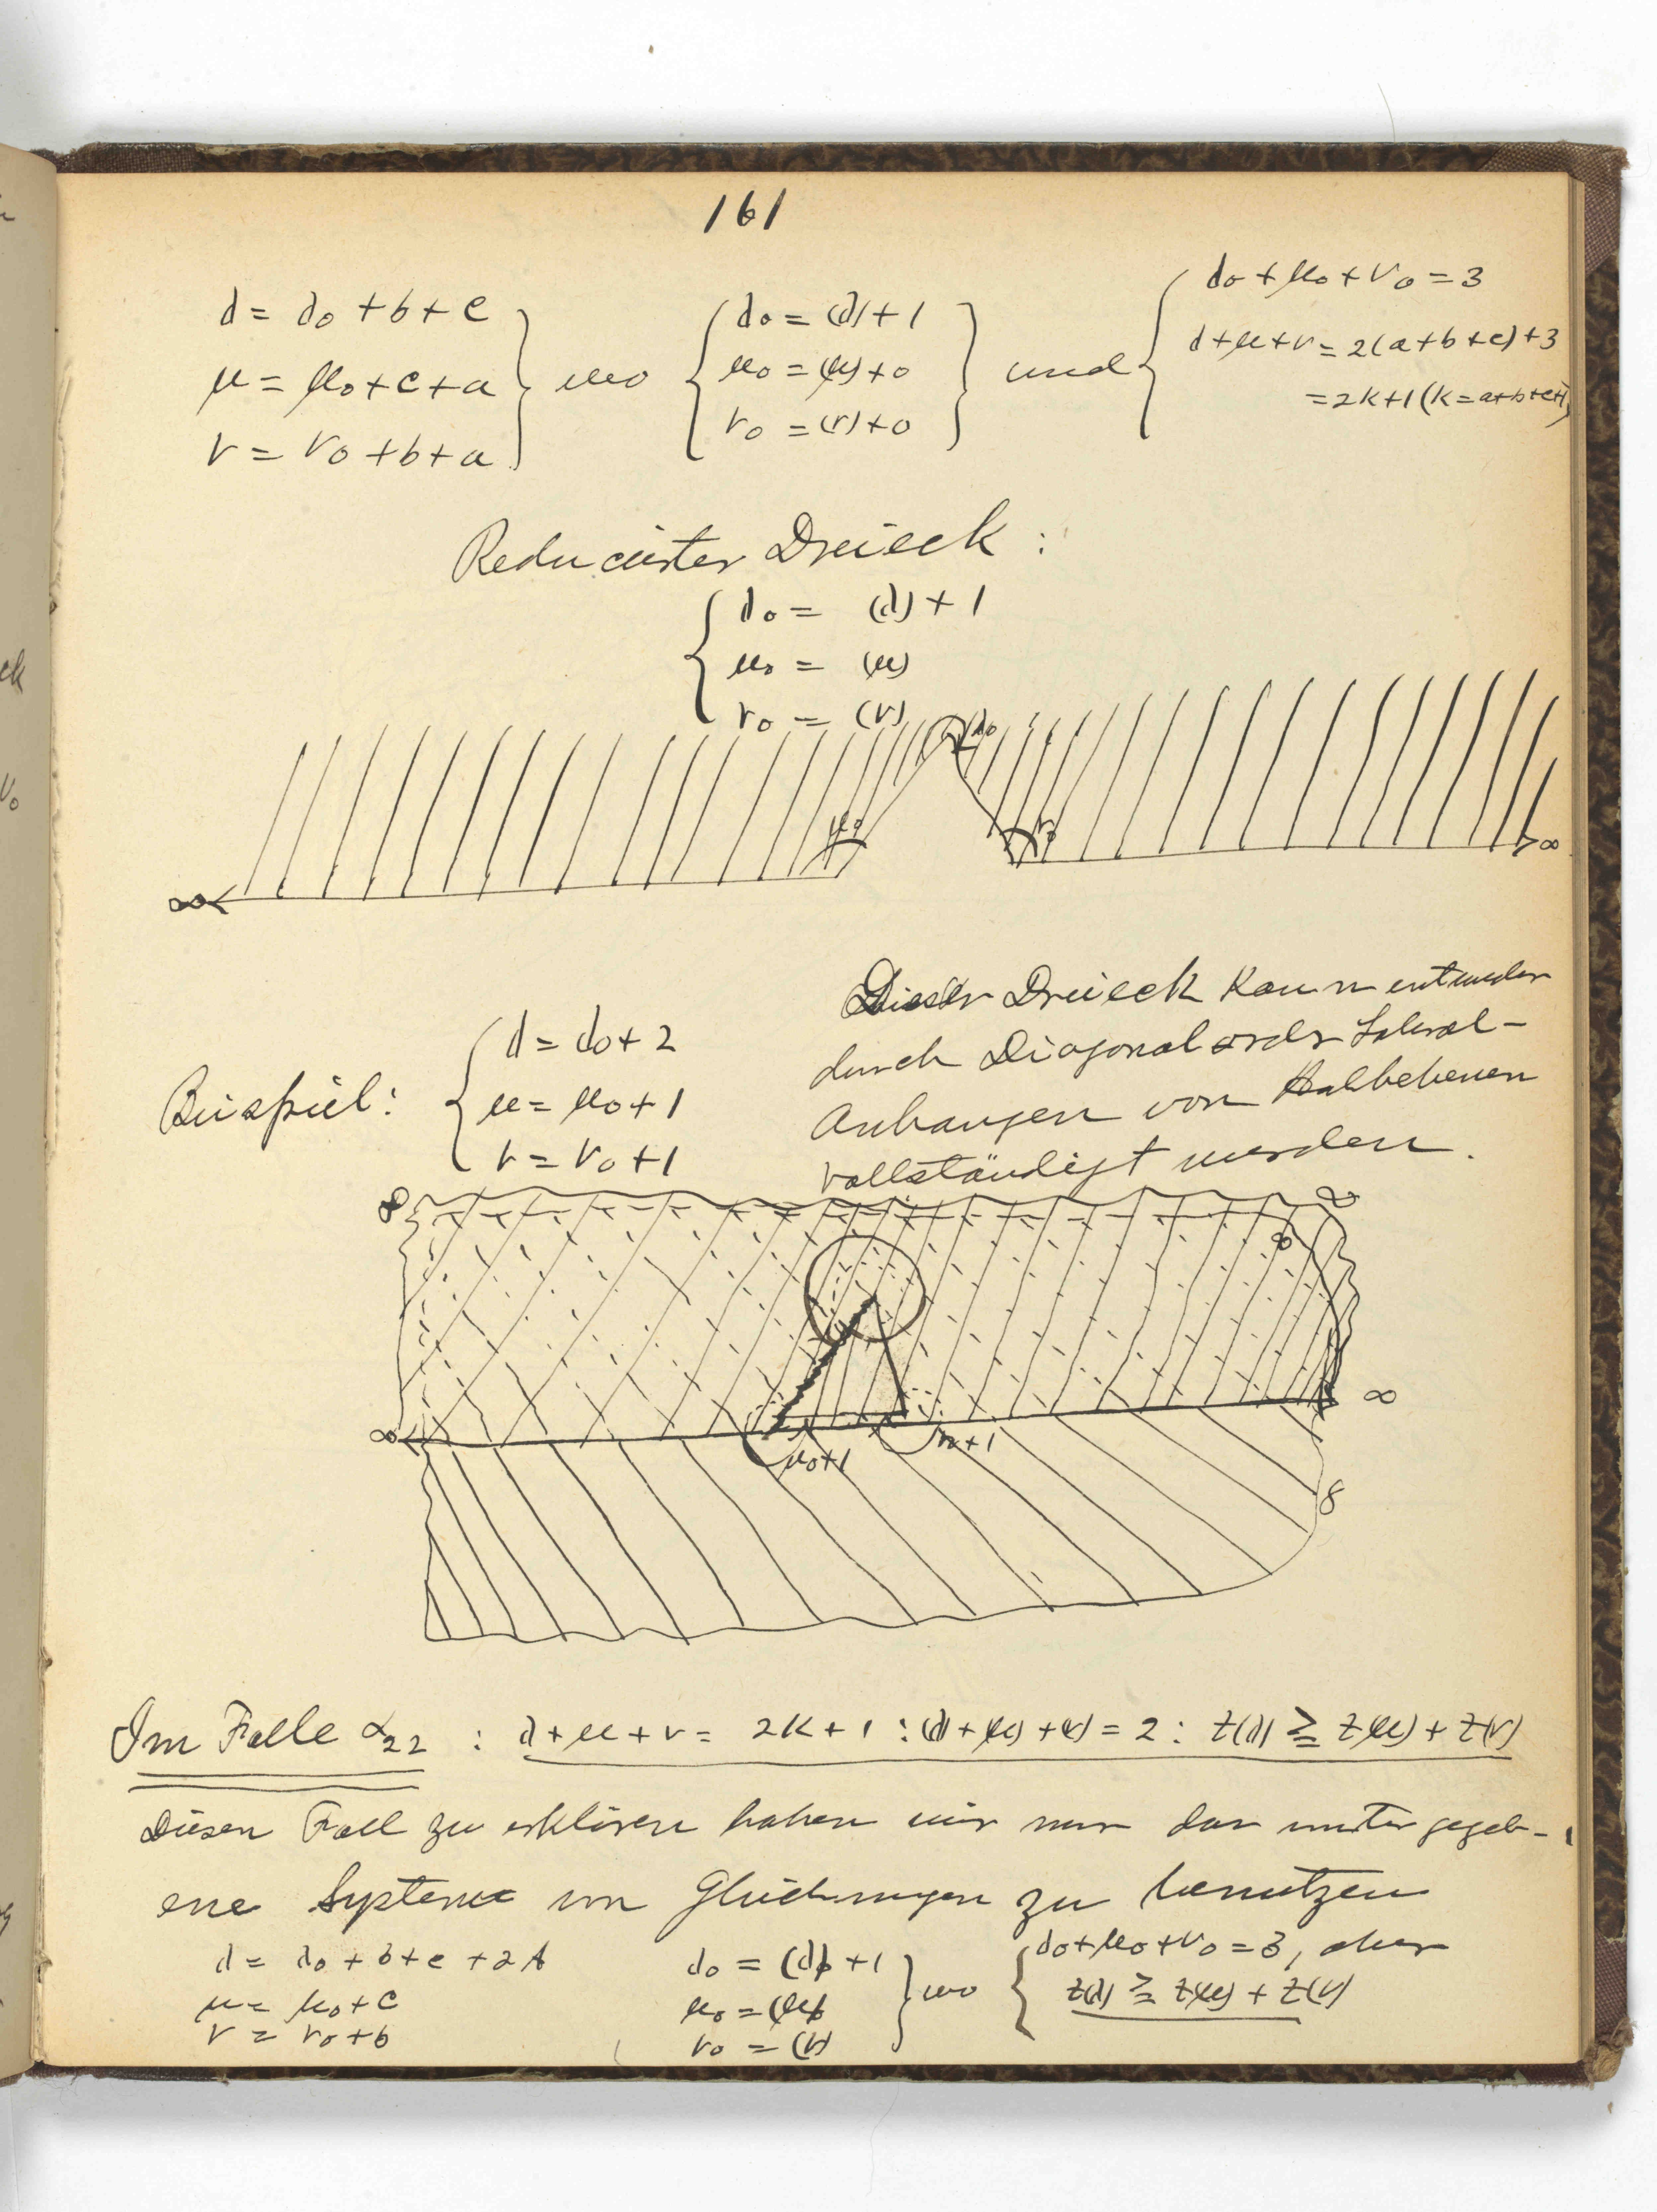 161
λ = λ₀ + b + c } wo { λ₀ = (λ) + 1 } und { λ₀ + μ₀ + ν₀ = 3
μ = μ₀ + c + a } { μ₀ = (μ) + 0 } { λ + μ + ν = 2(a + b + c) + 3
ν = ν₀ + b + a } { ν₀ = (ν) + 0 } { = 2k + 1 (k = a + b + c + 1)
Reducirter Dreieck :
{ λ₀ = (λ) + 1
μ₀ = (μ)
ν₀ = (ν)
λ₀
μ₀ ν₀
∞ ∞
Dieser Dreieck kann entweder
durch Diagonal oder Lateral-
Anhangen von Halbebenen
vollständigt werden.
Beispiel: { λ = λ₀ + 2
μ = μ₀ + 1
ν = ν₀ + 1
∞ ∞
∞
∞ ∞
μ₀+1 ν₀+1
∞
Im Falle α₂₂ : λ + μ + ν = 2k + 1 : (λ) + (μ) + (ν) = 2 : z(λ) ≧ z(μ) + z(ν)
Diesen Fall zu erklären haben wir nur das unter gegeb-
ene Systeme von Gleichungen zu benutzen
λ = λ₀ + b + c + 2A λ₀ = (λ) + 1 } wo { λ₀ + μ₀ + ν₀ = 3, aber
μ = μ₀ + c μ₀ = (μ) } { z(λ) ≧ z(μ) + z(ν)
ν = ν₀ + b ν₀ = (ν)